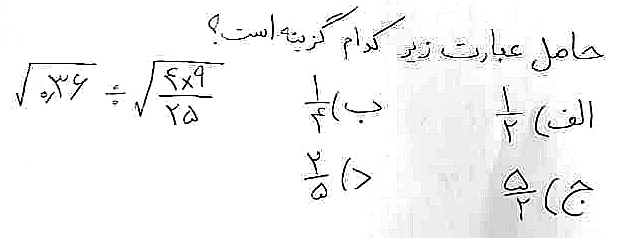 حاصل عبارت زیر کدام گزینه است؟
√۰٫۳۶ ÷ √(۴×۹/۲۵)
الف) ۱/۲ ب) ۱/۴
ج) ۵/۲ د) ۲/۵